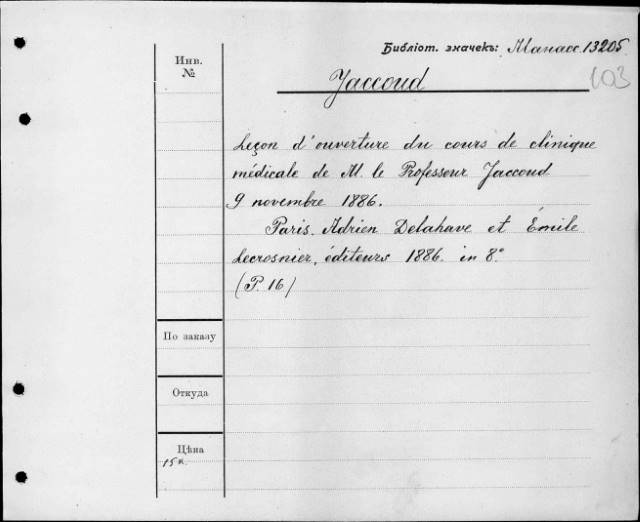 Библіот. значекъ: Манасс. 13205
103
Инв.
№
Jaccoud
Leçon d'ouverture du cours de clinique
médicale de M. le Professeur Jaccoud
9 novembre 1886.
Paris. Adrien Delahave et Émile
Lecrosnier, éditeurs 1886. in 8°
(P. 16)
По заказу
Откуда
Цѣна
15 к.